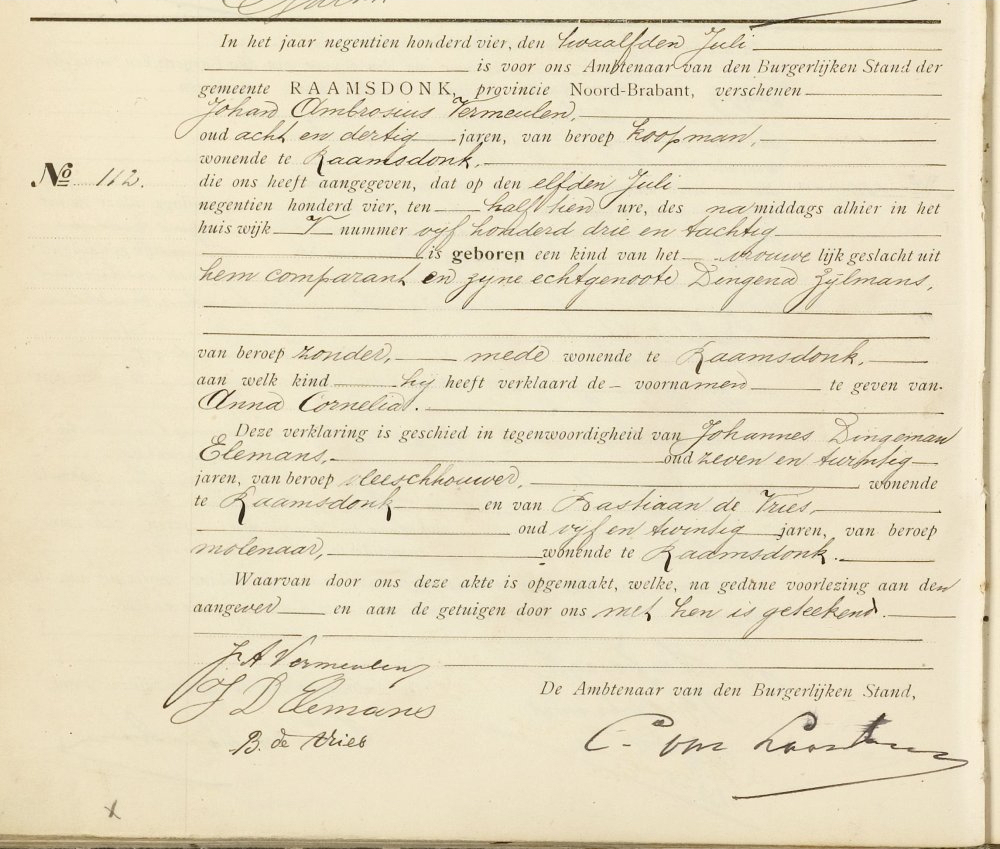 In het jaar negentien honderd vier, den twaalfden Juli
is voor ons Ambtenaar van den Burgerlijken Stand der
gemeente RAAMSDONK, provincie Noord-Brabant, verschenen
Johan Ambrosius Vermeulen,
oud acht en dertig jaren, van beroep koopman,
wonende te Raamsdonk,
No 112.
die ons heeft aangegeven, dat op den elfden Juli
negentien honderd vier, ten half tien ure, des namiddags alhier in het
huis wijk nummer vyf honderd drie en tachtig
is geboren een kind van het vrouwelijk geslacht uit
hem comparant en zyne echtgenoote Dingena Zijlmans,
van beroep zonder, mede wonende te Raamsdonk,
aan welk kind hij heeft verklaard de voornamen te geven van
Anna Cornelia.
Deze verklaring is geschied in tegenwoordigheid van Johannes Dingeman
Elemans, oud zeven en twintig
jaren, van beroep vleeschhouwer, wonende
te Raamsdonk en van Bastiaan de Vries,
oud vyf en twintig jaren, van beroep
molenaar, wonende te Raamsdonk.
Waarvan door ons deze akte is opgemaakt, welke, na gedane voorlezing aan den
aangever en aan de getuigen door ons met hen is geteekend.
J. A Vermeulen
J D Elemans
De Ambtenaar van den Burgerlijken Stand,
B. de Vries
C. van
x